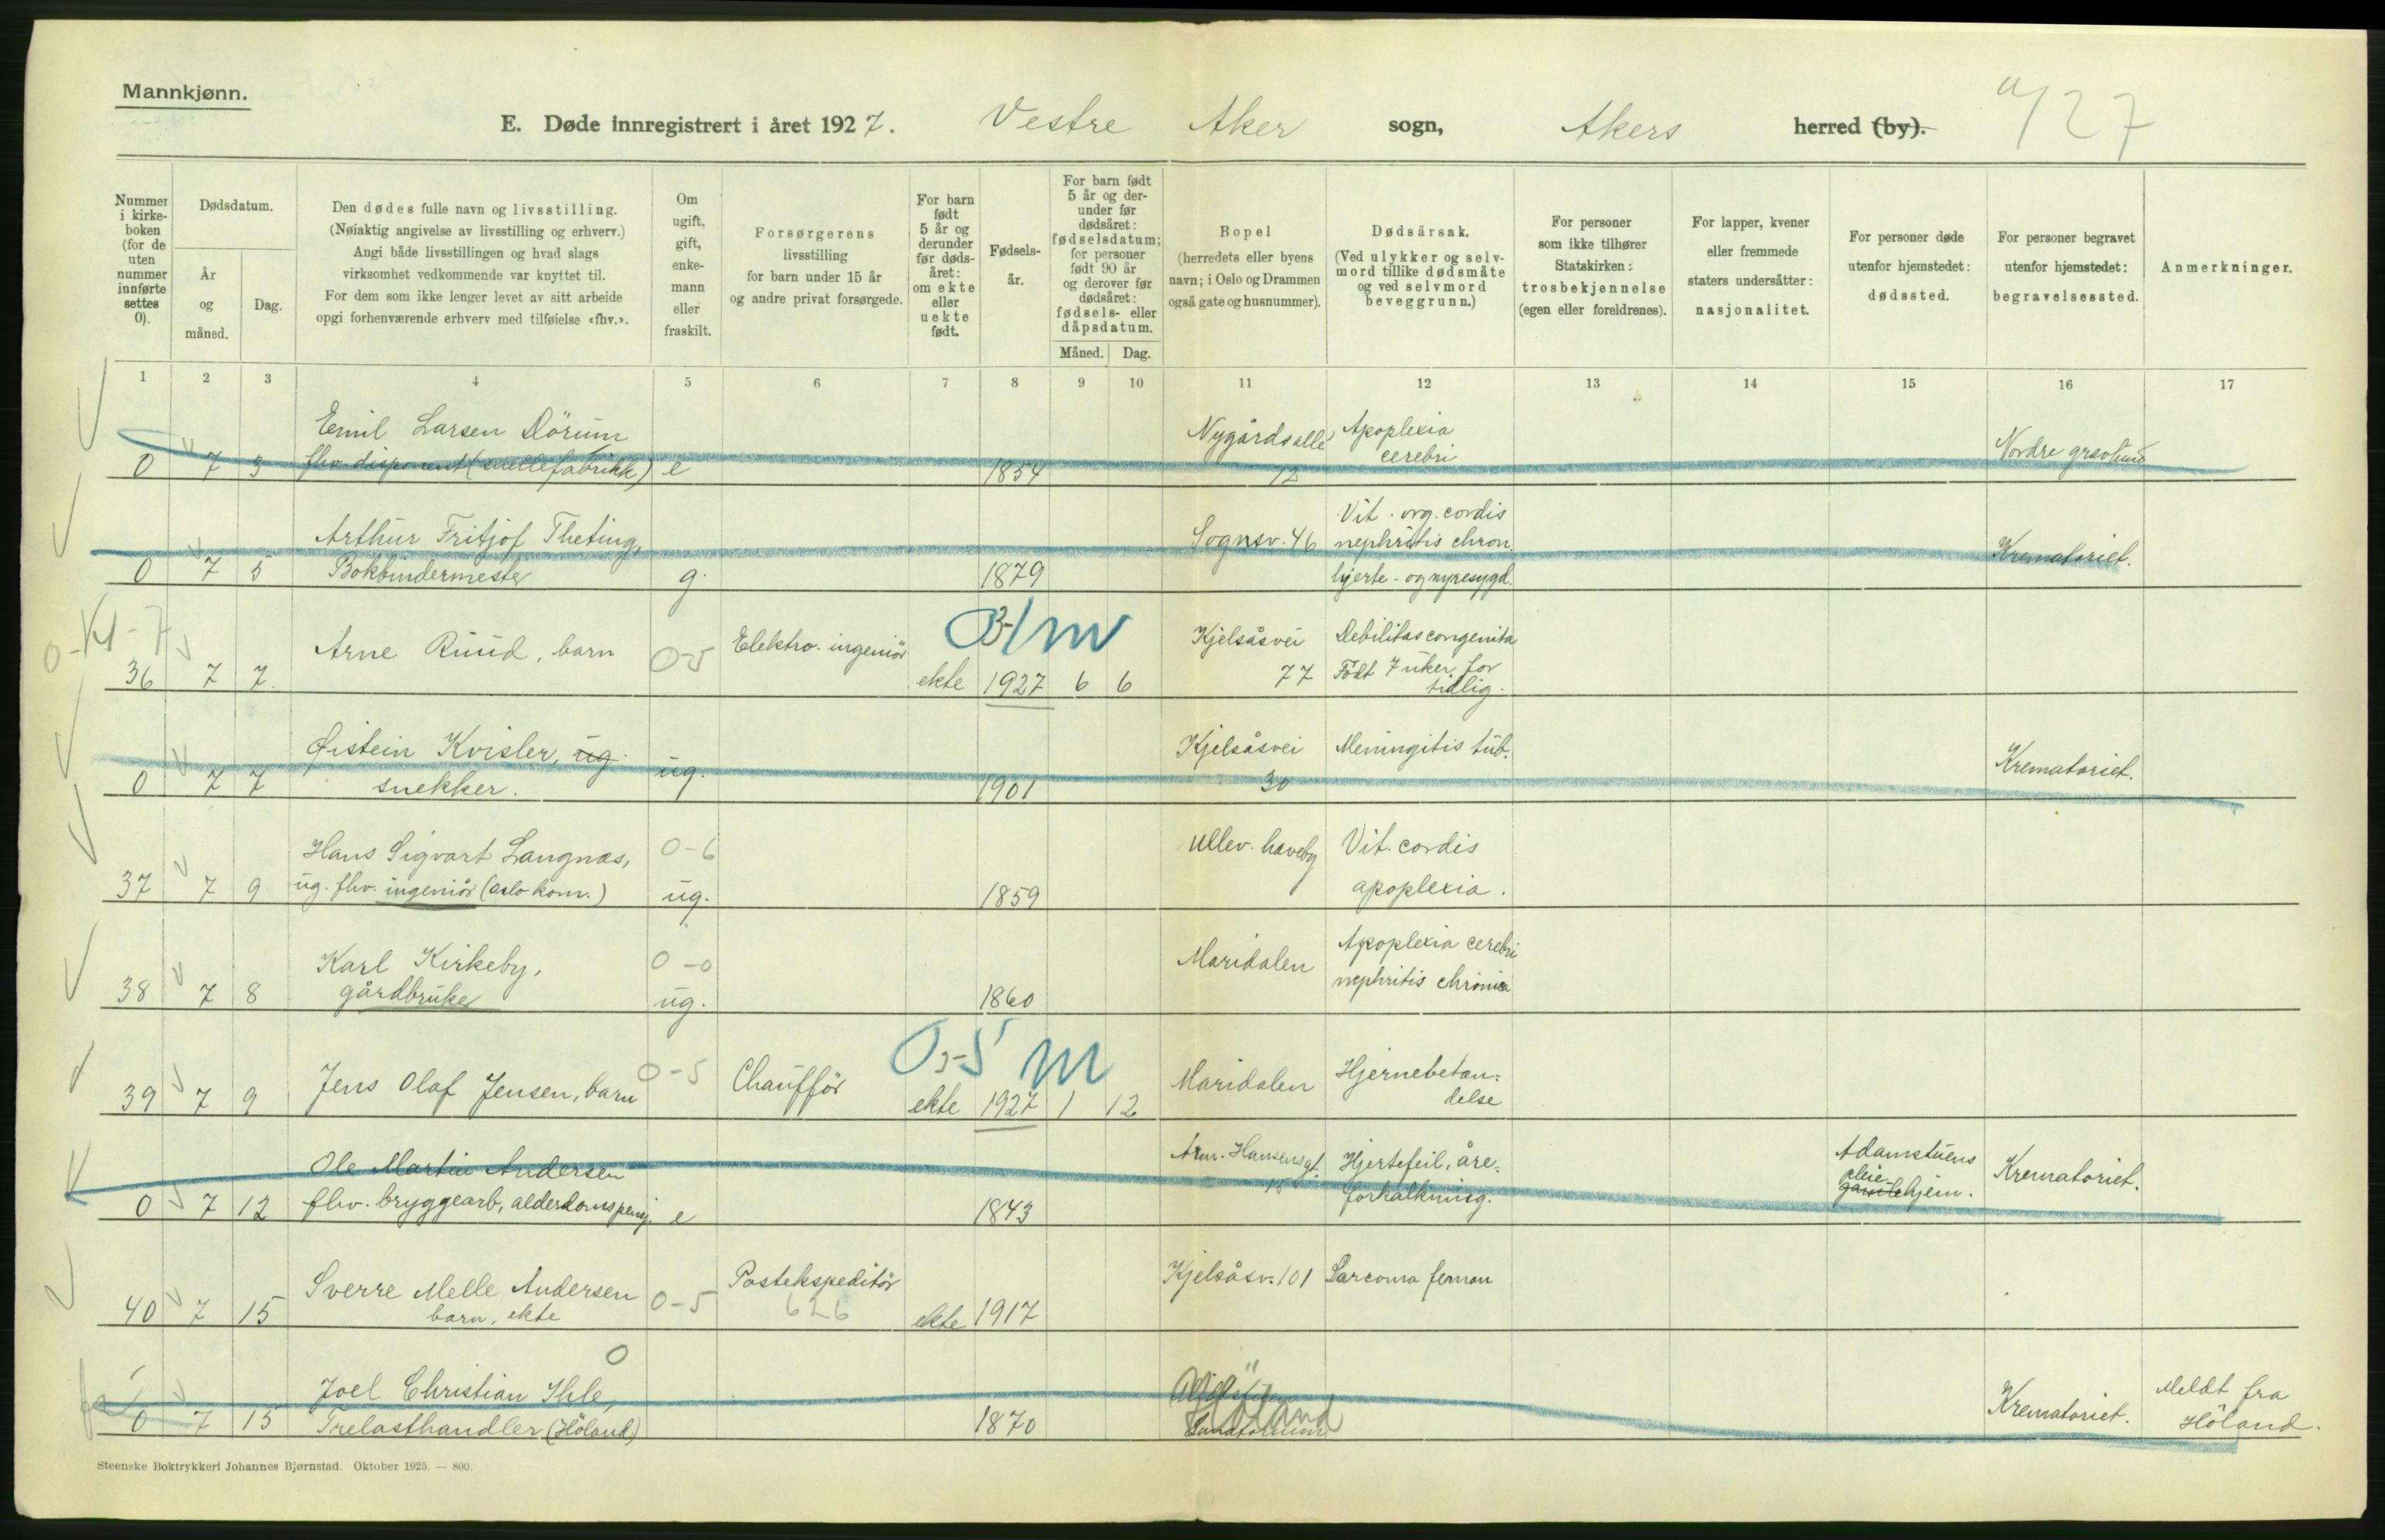 Mannkjønn.
E. Døde innregistrert i året 1927. Vestre Aker sogn, Akers herred (by). 4/27
Nummer i kirkeboken (for de uten nummer innførte settes 0).
Dødsdatum.
År og måned.
Dag.
Den dødes fulle navn og livsstilling.
(Nøiaktig angivelse av livsstilling og erhverv.)
Angi både livsstillingen og hvad slags
virksomhet vedkommende var knyttet til.
For dem som ikke lenger levet av sitt arbeide
opgi forhenværende erhverv med tilføielse «fhv.».
Om ugift, gift, enkemann eller fraskilt.
Forsørgerens livsstilling
for barn under 15 år
og andre privat forsørgede.
For barn født 5 år og derunder før dødsåret: om ekte eller uekte født.
Fødselsår.
For barn født 5 år og derunder før dødsåret: fødselsdatum; for personer født 90 år og derover før dødsåret: fødsels- eller dåpsdatum.
Måned. Dag.
Bopel
(herredets eller byens navn; i Oslo og Drammen også gate og husnummer).
Dødsårsak.
(Ved ulykker og selvmord tillike dødsmåte og ved selvmord beveggrunn.)
For personer som ikke tilhører Statskirken: trosbekjennelse (egen eller foreldrenes).
For lapper, kvener eller fremmede staters undersåtter: nasjonalitet.
For personer døde utenfor hjemstedet: dødssted.
For personer begravet utenfor hjemstedet: begravelsessted.
Anmerkninger.
1 2 3 4 5 6 7 8 9 10 11 12 13 14 15 16 17
Emil Larsen Dörum Nygårdsallé Apoplexia
0 7 3 fhv. disponent (snellefabrikk) e 1854 12 cerebri Nordre gravlund
Arthur Fritjof Theting, Sognsv. 46 Vit. org. cordis
nephritis chron. Krematoriet.
0 7 5 Bokbindermester g. 1879 hjerte- og nyresygd.
Arne Ruud, barn 0-5 Elektro. ingeniör Kjelsåsvei Debilitas congenita
36 7 7. ekte 1927 6 6 77 Födt 7 uker for
tidlig.
Øistein Kvisler, ug. Kjelsåsvei Meningitis tub. Krematoriet.
0 7 7 snekker. ug. 1901 30
Hans Sigvart Langnæs, 0-6 Ullev. haveby Vit. cordis
37 7 9 ug. fhv. ingeniör (Oslo kom.) ug. 1859 apoplexia.
Karl Kirkeby, 0-0 Maridalen Apoplexia cerebri
38 7 8 gårdbruke ug. 1860 nephritis chronica
Jens Olaf Jensen, barn 0-5 Chaufför 0-5 m Maridalen Hjernebetæn-
39 7 9 ekte 1927 1 12 delse
Ole Martin Andersen Arm. Hansensgt. Hjertefeil, åre- Adamstuens Krematoriet.
0 7 12 fhv. bryggearb, alderdomspensj. e 1843 15 forkalkning. pleie-
gamlehjem.
Sverre Melle Andersen 0-5 Postekspeditör Kjelsåsv. 101 Sarcoma femon
40 7 15 barn, ekte 626 ekte 1917
0
Joel Christian Ihle, Höland Krematoriet. Meldt fra
0 7 15 Trelasthandler (Höland) 1870 Sanatorium Höland.
Steenske Boktrykkeri Johannes Bjørnstad. Oktober 1925. — 800.